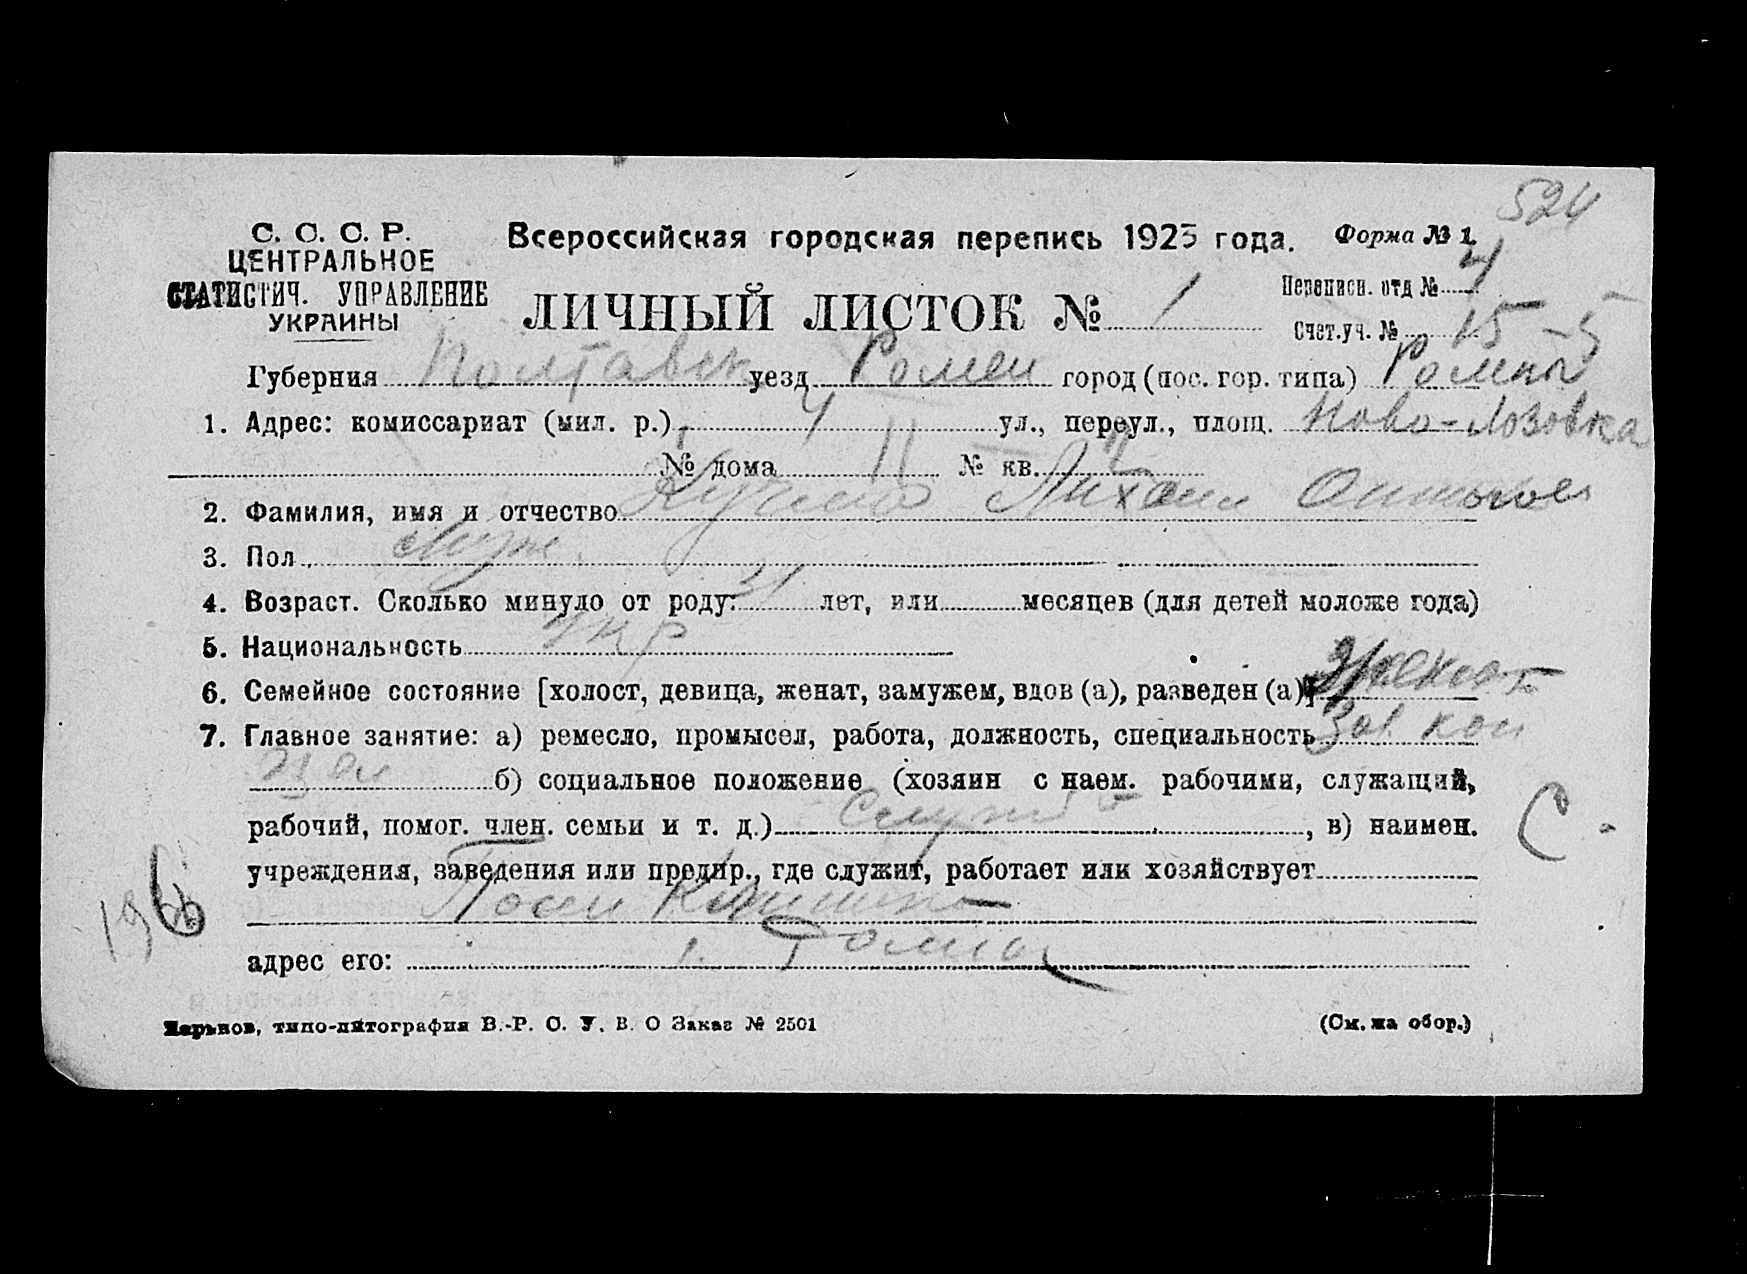 524
С. С. С. Р.
ЦЕНТРАЛЬНОЕ
СТАТИСТИЧ. УПРАВЛЕНИЕ
УКРАИНЫ
Всероссийская городская перепись 1923 года.
Форма № 1.
ЛИЧНЫЙ ЛИСТОК № 1
Переписн. отд № 4
Счет.уч. № 15-5
Губерния Полтавск уезд Ромен город (пос. гор. типа) Ромны
1. Адрес: комиссариат (мил. р.) 4 ул., переул., площ. Ново-Лозовка
№ дома 11 № кв.
2. Фамилия, имя и отчество Михаил
3. Пол Муж.
4. Возраст. Сколько минуло от роду: 31 лет, или месяцев (для детей моложе года)
5. Национальность Укр
6. Семейное состояние [холост, девица, женат, замужем, вдов (а), разведен (а)] Женат
7. Главное занятие: а) ремесло, промысел, работа, должность, специальность Зав. кон
б) социальное положение (хозяин с наем. рабочими, служащий,
рабочий, помог. член. семьи и т. д.) Служ , в) наимен.
С
учреждения, заведения или предпр., где служит, работает или хозяйствует
196
адрес его: г. Ромны
Харьков, типо-литография В.-Р. С. У. В. О Заказ № 2501
(См. на обор.)